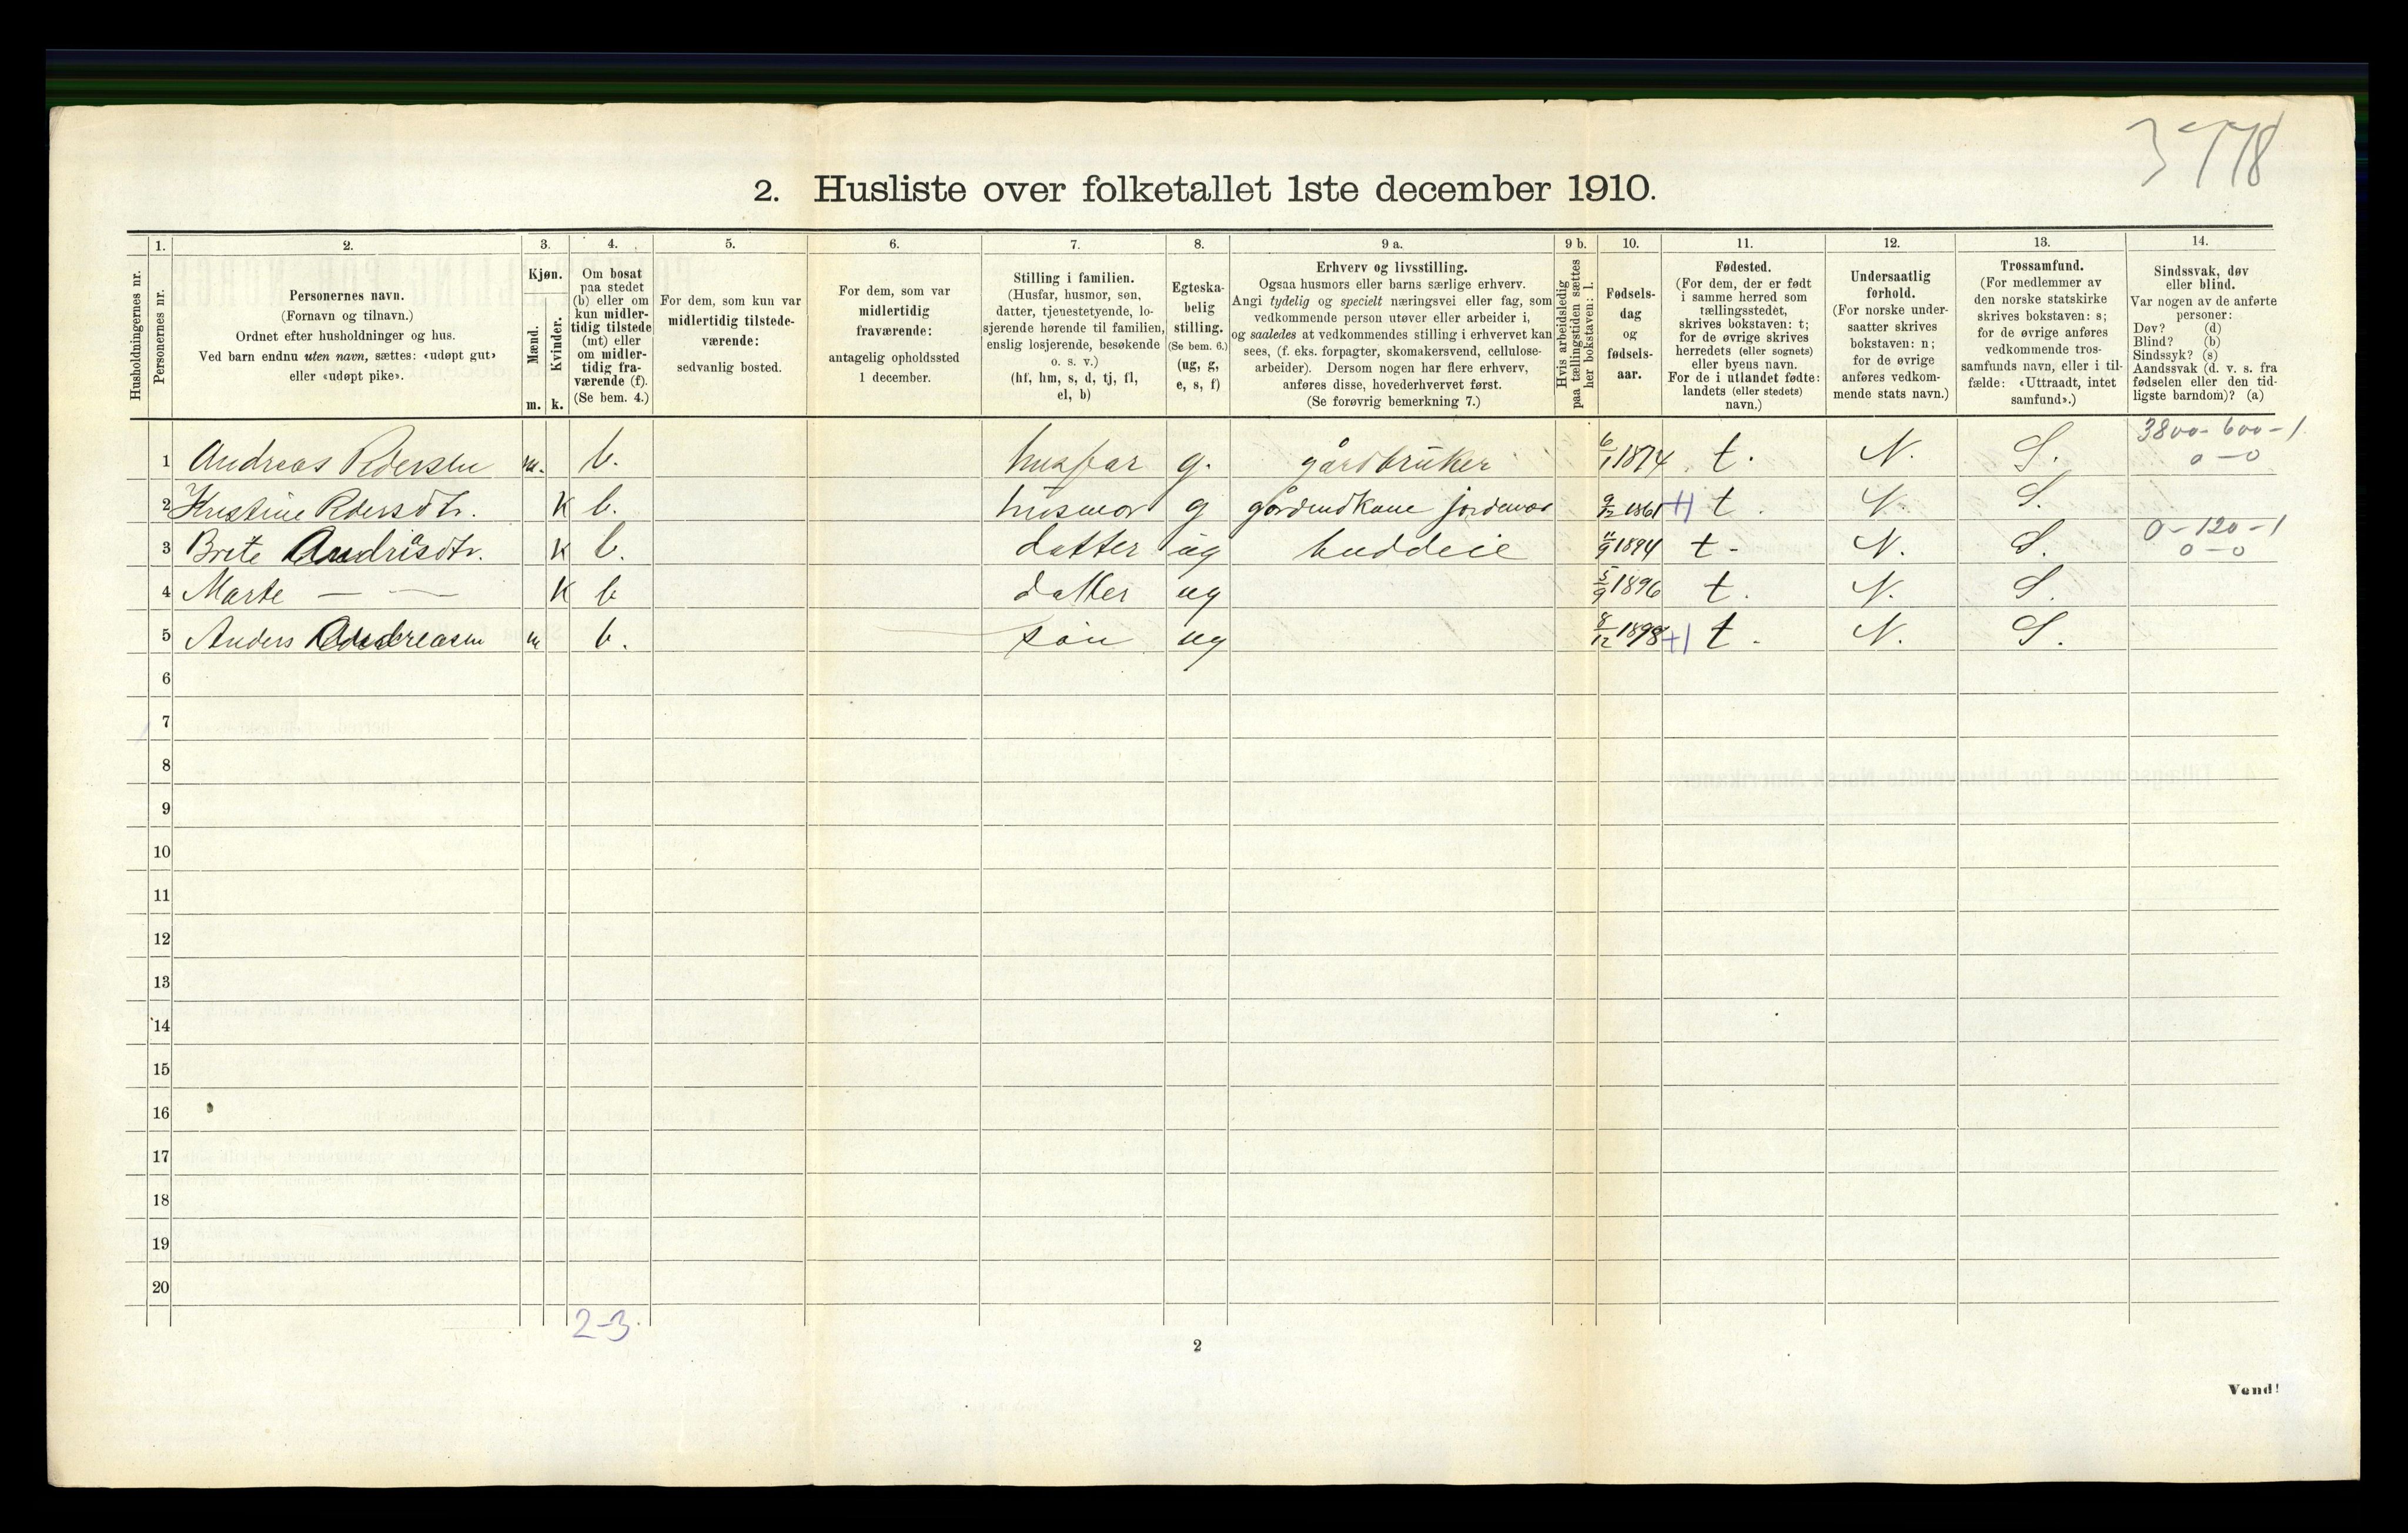 3778
2. Husliste over folketallet 1ste december 1910.
Husholdningernes nr.
1. Personernes nr.
2. Personernes navn.
(Fornavn og tilnavn.)
Ordnet efter husholdninger og hus.
Ved barn endnu uten navn, sættes: «udøpt gut»
eller «udøpt pike».
3. Kjøn.
Mænd. Kvinder.
m. k.
4. Om bosat
paa stedet
(b) eller om
kun midler-
tidig tilstede
(mt) eller
om midler-
tidig fra-
værende (f).
(Se bem. 4.)
5. For dem, som kun var
midlertidig tilstede-
værende:
sedvanlig bosted.
6. For dem, som var
midlertidig
fraværende:
antagelig opholdssted
1 december.
7. Stilling i familien.
(Husfar, husmor, søn,
datter, tjenestetyende, lo-
sjerende hørende til familien,
enslig losjerende, besøkende
o. s. v.)
(hf, hm, s, d, tj, fl,
el, b)
8. Egteska-
belig
stilling.
(Se bem. 6.)
(ug, g,
e, s, f)
9 a. Erhverv og livsstilling.
Ogsaa husmors eller barns særlige erhverv.
Angi tydelig og specielt næringsvei eller fag, som
vedkommende person utøver eller arbeider i,
og saaledes at vedkommendes stilling i erhvervet kan
sees, (f. eks. forpagter, skomakersvend, cellulose-
arbeider). Dersom nogen har flere erhverv,
anføres disse, hovederhvervet først.
(Se forøvrig bemerkning 7.)
9 b. Hvis arbeidsledig
paa tællingstiden sættes
her bokstaven: l.
10. Fødsels-
dag
og
fødsels-
aar.
11. Fødested.
(For dem, der er født
i samme herred som
tællingsstedet,
skrives bokstaven: t;
for de øvrige skrives
herredets (eller sognets)
eller byens navn.
For de i utlandet fødte:
landets (eller stedets)
navn.)
12. Undersaatlig
forhold.
(For norske under-
saatter skrives
bokstaven: n;
for de øvrige
anføres vedkom-
mende stats navn.)
13. Trossamfund.
(For medlemmer av
den norske statskirke
skrives bokstaven: s;
for de øvrige anføres
vedkommende tros-
samfunds navn, eller i til-
fælde: «Uttraadt, intet
samfund».)
14. Sindssvak, døv
eller blind.
Var nogen av de anførte
personer:
Døv? (d)
Blind? (b)
Sindssyk? (s)
Aandssvak (d. v. s. fra
fødselen eller den tid-
ligste barndom)? (a)
1 Andreas Pedersen m. b. husfar g. gårdbruker 6/1 1874 t. N. S. 3800-600-1 0-0
2 Kristine Pedersdtr. k b. husmor g gårdmdkone jordmor 9/12 1861 +1 t. N. S.
3 Brite Andrisdtr. k b. datter ug buddeie 11/9 1894 t- N. S. 0-120-1 0-0
4 Marte — — k b datter ug 5/9 1896 t. N. S.
5 Anders Andreasen m b. søn ug 8/12 1898 +1 t. N. S.
6
7
8
9
10
11
12
13
14
15
16
17
18
19
20
2-3.
2
Vend!